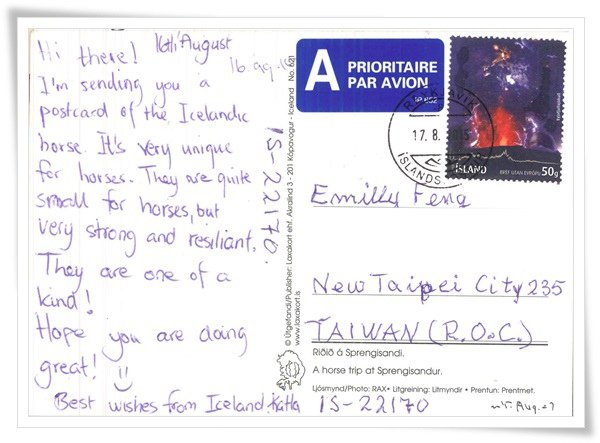 Hi there! 16th August
16. ág. 15
I'm sending you a
postcard of the Icelandic
horse. It's very unique
for horses. They are quite
small for horses, but
very strong and resiliant.
They are one of a
kind!
Hope you are doing
great!
Best wishes from Iceland. Katla
IS-22170.
© Útgefandi/Publisher: Laxakort ehf. Akralind 3 - 201 Kópavogur - Iceland No. 621
www.laxakort.is
A PRIORITAIRE
PAR AVION
17. 8. 2015
ÍSLAND
BRÉF UTAN EVRÓPU
50g
Emilly Feng
New Taipei City 235
TAIWAN (R.O.C.)
Riðið á Sprengisandi.
A horse trip at Sprengisandur.
Ljósmynd/Photo: RAX• Litgreining: Litmyndir • Prentun: Prentmet.
IS-22170